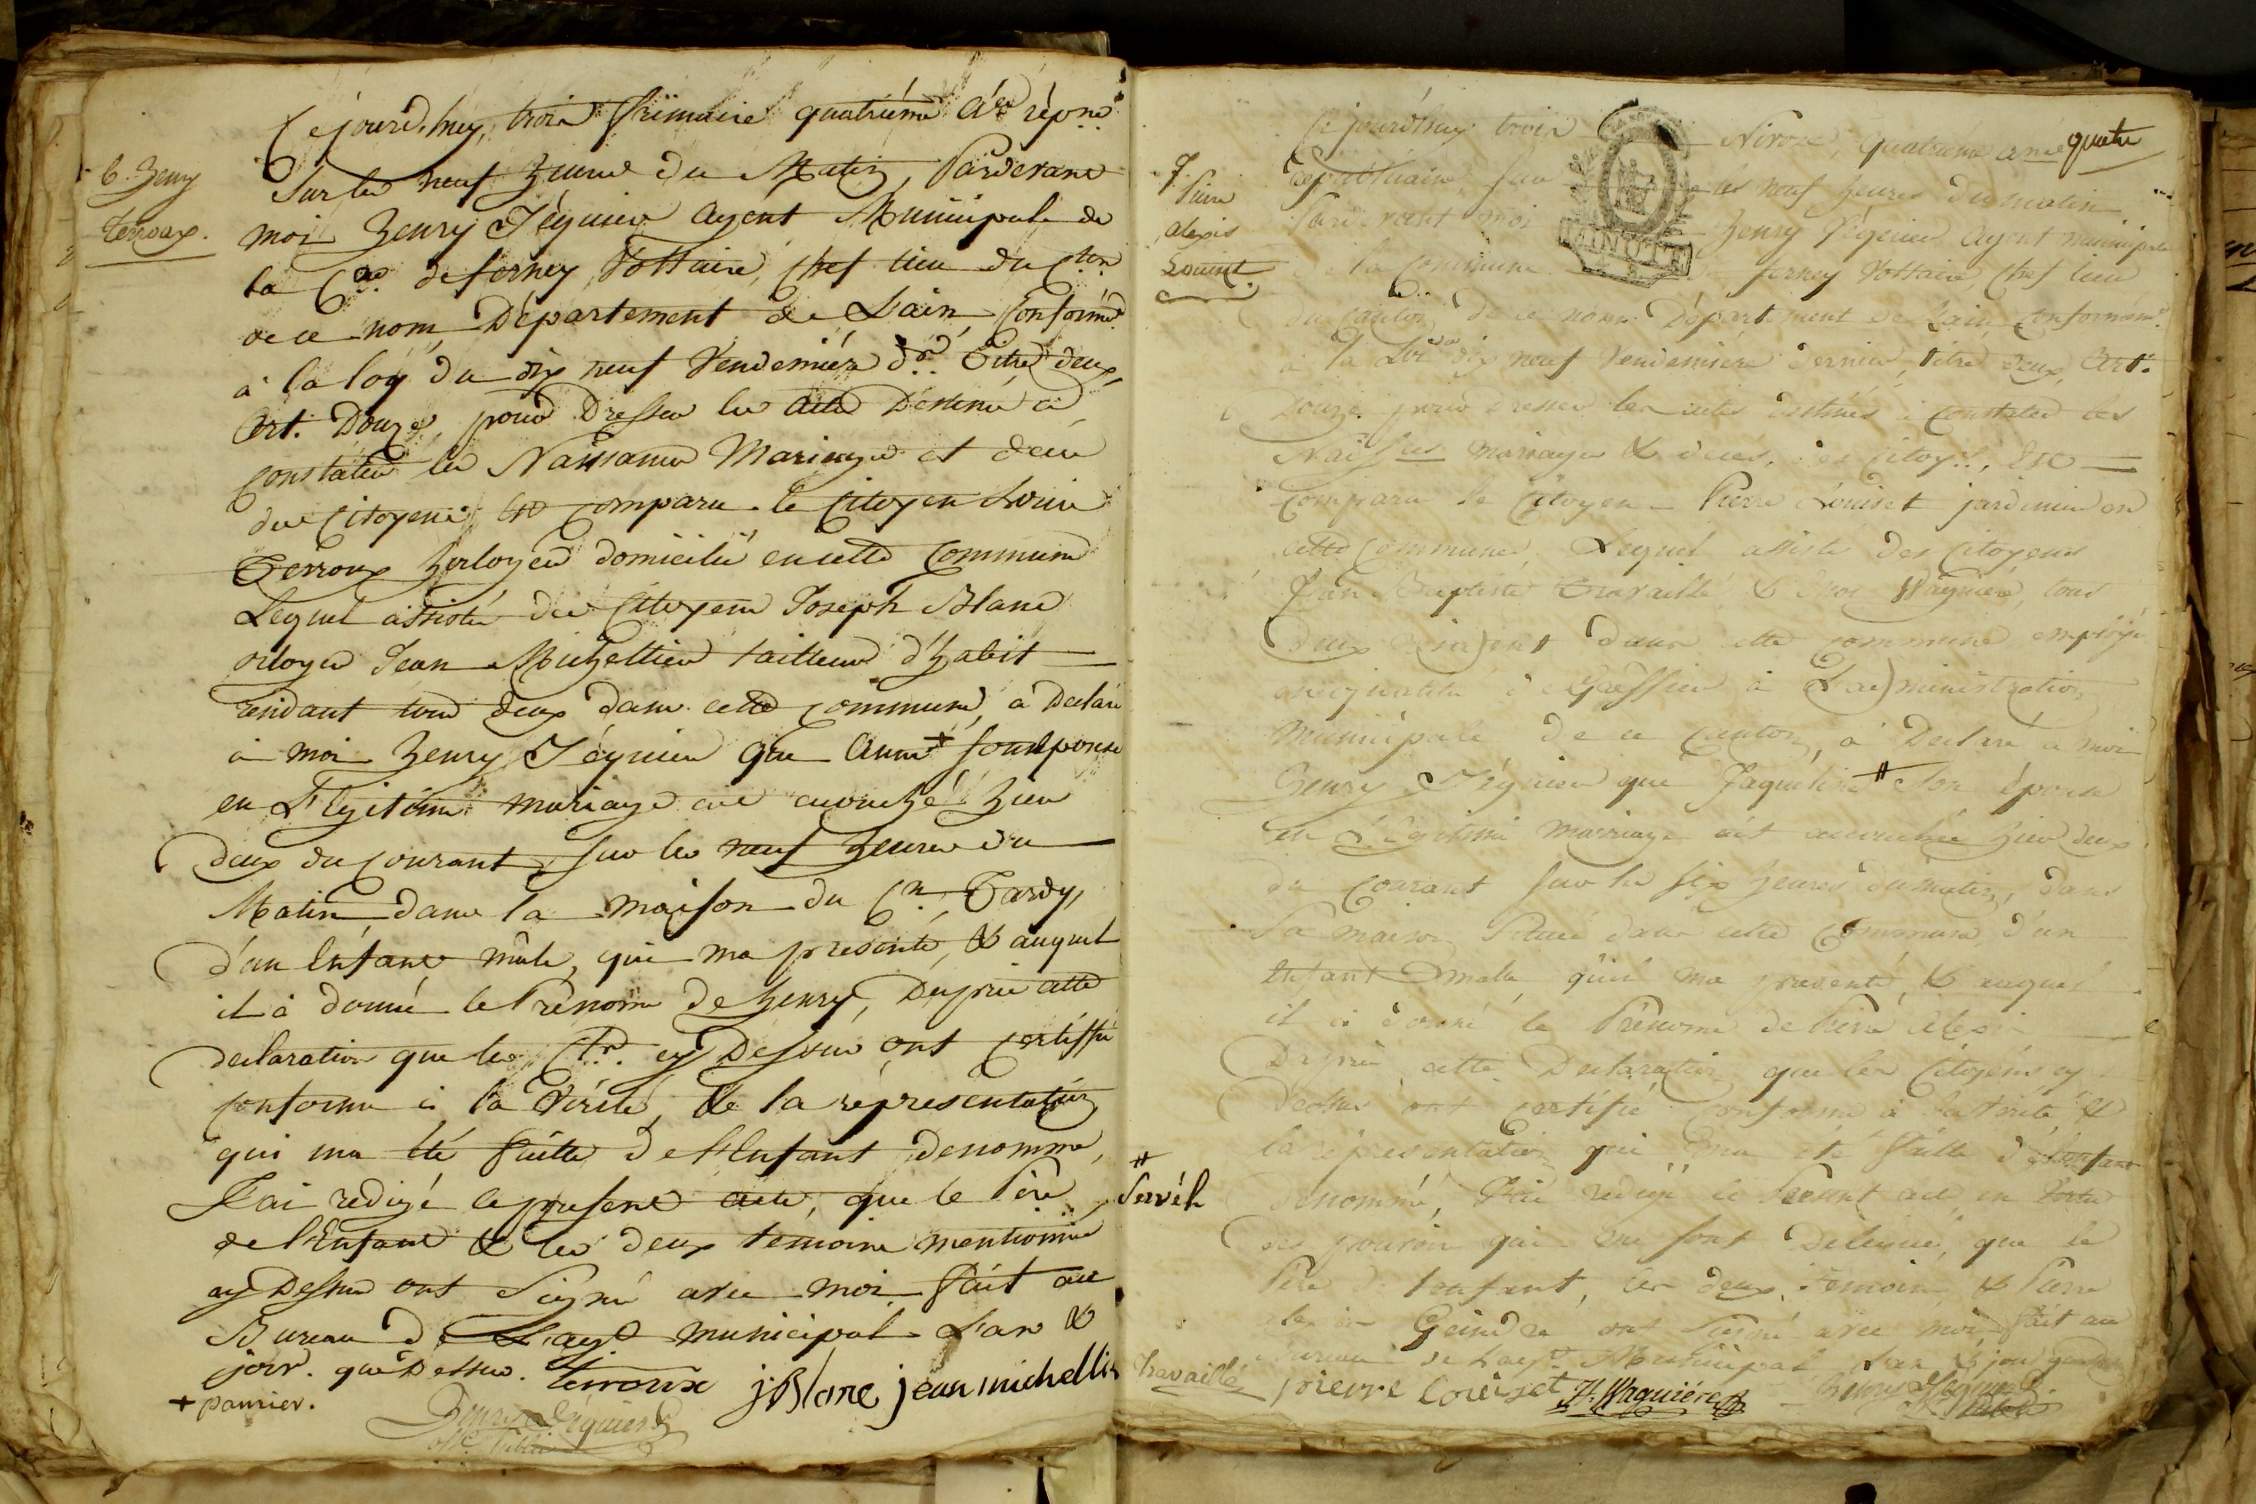 6. henry
Terroux.
Cejourd'huy, trois frimaire quatriéme Aée répne
Sur les neuf heures du Matin, Pardevant
moi henry Féguier agent Municipale de
la Cne de ferney Voltaire, chef lieu du Cton
de ce nom, Département de L'ain, Conformt
à la loy du dix neuf Vendemiére dr Titre deux,
Art. Douze, pour Dresser les actes Destinés à
constater les Naissances Mariages et décès
des Citoyens est comparu le Citoyen Louis
Terroux horloger domicilié en cette commune
Lequel assisté des Citoyens Joseph Blanc
orloger Jean Michellier tailleur d'habit
residant tous deux dans cette commune, à Declaré
à moi henry Féguier que Anne + son Eponse
en L'Egitime mariage est accouché hier
deux du courant, sur les neuf heures du
Matin, dans la maison du Cn. Tardy,
d'un Enfant mâle, qui ma presenté, & auquel
il à donné le Prénom de henry, Dèprès cette
declaration que les Ctns cy Dessus ont certiffié
conforme à la Vérité, & la répresentation
qui ma été faitte de l'Enfant denommé,
J'ai redigé le present acte, que le Pére
de l'Enfant & les deux temoins mentionnés
cy Dessus ont Signé avec moi fait au
Bureau de L'agt municipal L'an &
jour. que Dessus. Terroux j: Blanc jean michellier
+ pannier.
henry Féguier
off. Public
quatre
MINUTE
7.
Pierre
alexis
Louiset.
Cejourd'huy trois Nivose, quatrieme anée
républicaine, sur les neuf heures du matin
Pardevant moi henry Féguier Agent municipale
de la Commune ferney Voltaire, chef lieu
du Canton de ce nom Département de L'ain conformémt
à la Loi du dix neuf Vendemiére dernier, titre deux, Art.
Douze pour dresser les actes destinés à Constater les
Naissces mariages & décés, des Citoyns, Est
comparu le Citoyen Pierre Louiset jardinier en
cette commune, Lequel assisté des Citoyens
Jean Baptiste Travaillé & Waguiére, tous
deux residents dans cette commune employé
en qualité de Greffier à L'administration
Municipale de ce Canton, à Declaré à moi
henry Féguier que Jaqueline # Son épouse
en L'Egitime Marriage est accouchée hier deux
du Courant sur les six heures du matin, dans
Sa maison Située dans cette Commune d'un
Enfant male, qu'il ma presenté, & auquel
il à donné le Prénom de Pierre Alexis
Dèprès cette Declaration que les Citoyens cy
dessus ont certifié Conforme à la Vérité, &
la répresentation qui ma été faitte de l'enfant
denommé, J'ai redigé le Présent acte en Vertu
des pouvoir qui me sont Délégué, que le
Pére de l'enfant, les deux témoins, & Pierre
alexis Geindre ont Signé avec moi, fait au
Bureau de L'agt Municipal L'an & jour que dessus
# Servéh
Travaillé pierre Louiset H. Waguiére henry Féguier